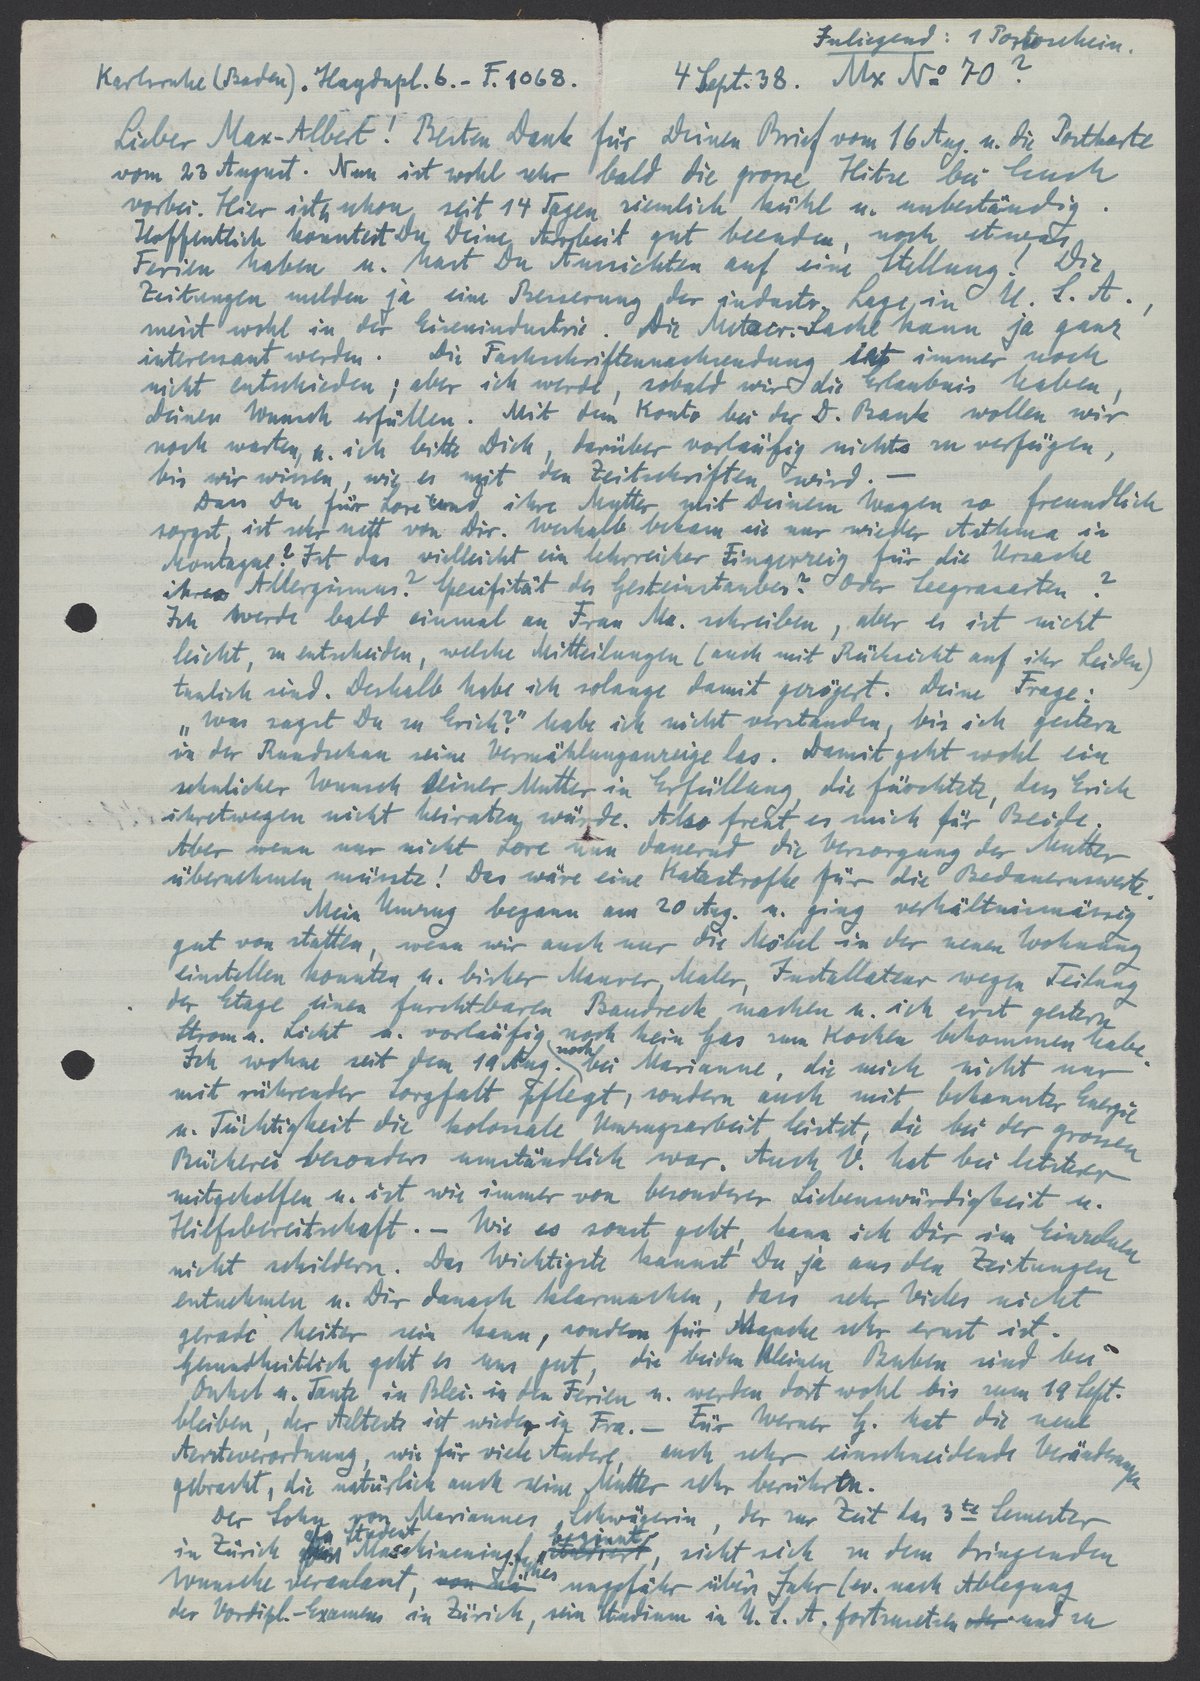 Inliegend: 1 Portoschein.
Karlsruhe (Baden). Haydnpl. 6. - F. 1068. 4 Sept. 38. Mx No 70?
Lieber Max-Albert! Besten Dank für Deinen Brief vom 16 Aug. u. die Postkarte
vom 23 August. Nun ist wohl sehr bald die grosse Hitze bei Euch
vorbei. Hier ist's schon seit 14 Tagen ziemlich kühl u. unbeständig.
Hoffentlich konntest Du Deine Arbeit gut beenden, noch etwas
Ferien haben u. hast Du Aussichten auf eine Stellung! Die
Zeitungen melden ja eine Besserung der industr. Lage in U. S. A.,
meist wohl in der Eisenindustrie. Die Sache kann ja ganz
interessant werden. Die Fachschriftennachsendung ist immer noch
nicht entschieden; aber ich werde, sobald wir die Erlaubnis haben,
Deinen Wunsch erfüllen. Mit dem Konto bei der D. Bank wollen wir
noch warten, u. ich bitte Dich, darüber vorläufig nichts zu verfügen,
bis wir wissen, wie es mit den Zeitschriften wird. —
Dass Du für Lore und ihre Mutter mit Deinem Wagen so freundlich
sorgst, ist sehr nett von Dir. Weshalb bekam sie nur wieder Asthma in
Montague? Ist das vielleicht ein lehrreicher Fingerzeig für die Ursache
ihres Allergismus? Spezifität des Gesteinstaubes? Oder Seegrasarten?
Ich werde bald einmal an Frau Ma. schreiben, aber es ist nicht
leicht, zu entscheiden, welche Mitteilungen (auch mit Rücksicht auf ihr Leiden)
tunlich sind. Deshalb habe ich solange damit gezögert. Deine Frage:
„Was sagst Du zu Erich?" habe ich nicht verstanden, bis ich gestern
in der Rundschau seine Vermählungsanzeige las. Damit geht wohl ein
sehnlicher Wunsch seiner Mutter in Erfüllung, die fürchtete, dass Erich
ihretwegen nicht heiraten würde. Also freut es mich für Beide.
Aber wenn nur nicht Lore nun dauernd die Versorgung der Mutter
übernehmen müsste! Das wäre eine Katastrofhe für die Bedauernswerte.
Mein Umzug begann am 20 Aug. u. ging verhältnismässig
gut von statten, wenn wir auch nur die Möbel in der neuen Wohnung
einstellen konnten u. bisher Maurer, Maler, Installateur wegen Teilung
der Etage einen furchtbaren Baudreck machen u. ich erst gestern
Strom u. Licht u. vorläufig noch kein Gas zum Kochen bekommen habe.
Ich wohne seit dem 19 Aug. noch bei Marianne, die mich nicht nur
mit rührender Sorgfalt pflegt, sondern auch mit bekannter Energie
u. Tüchtigkeit die kolossale Umzugsarbeit leistet, die bei der grossen
Bücherei besonders umständlich war. Auch V. hat bei letzterer
mitgeholfen u. ist wie immer von besonderer Liebenswürdigkeit u.
Hilfsbereitschaft. — Wie es sonst geht, kann ich Dir im Einzelnen
nicht schildern. Das Wichtigste kannst Du ja aus den Zeitungen
entnehmen u. Dir danach klarmachen, dass sehr Vieles nicht
gerade heiter sein kann, sondern für Manche sehr ernst ist.
Gesundheitlich geht es uns gut, die beiden kleinen Buben sind bei
Onkel u. Tante in Blei. in den Ferien u. werden dort wohl bis zum 19 Sept.
bleiben, der Aelteste ist wieder in Fra. — Für Werner G. hat die neue
Aerzteverordnung, wie für viele Andere, auch sehr einschneidende Veränderungen
gebracht, die natürlich auch seine Mutter sehr berührten.
Der Sohn von Mariannes Schwägerin, der zur Zeit das 3te Semester
in Zürich als Student des Maschineningf. beginnt, sieht sich zu dem dringenden
Wunsche veranlasst, ungefähr übers Jahr (ev. nach Ablegung
der Vordipl.-Examens in Zürich, sein Studium in U. S. A. fortzusetzen und zu